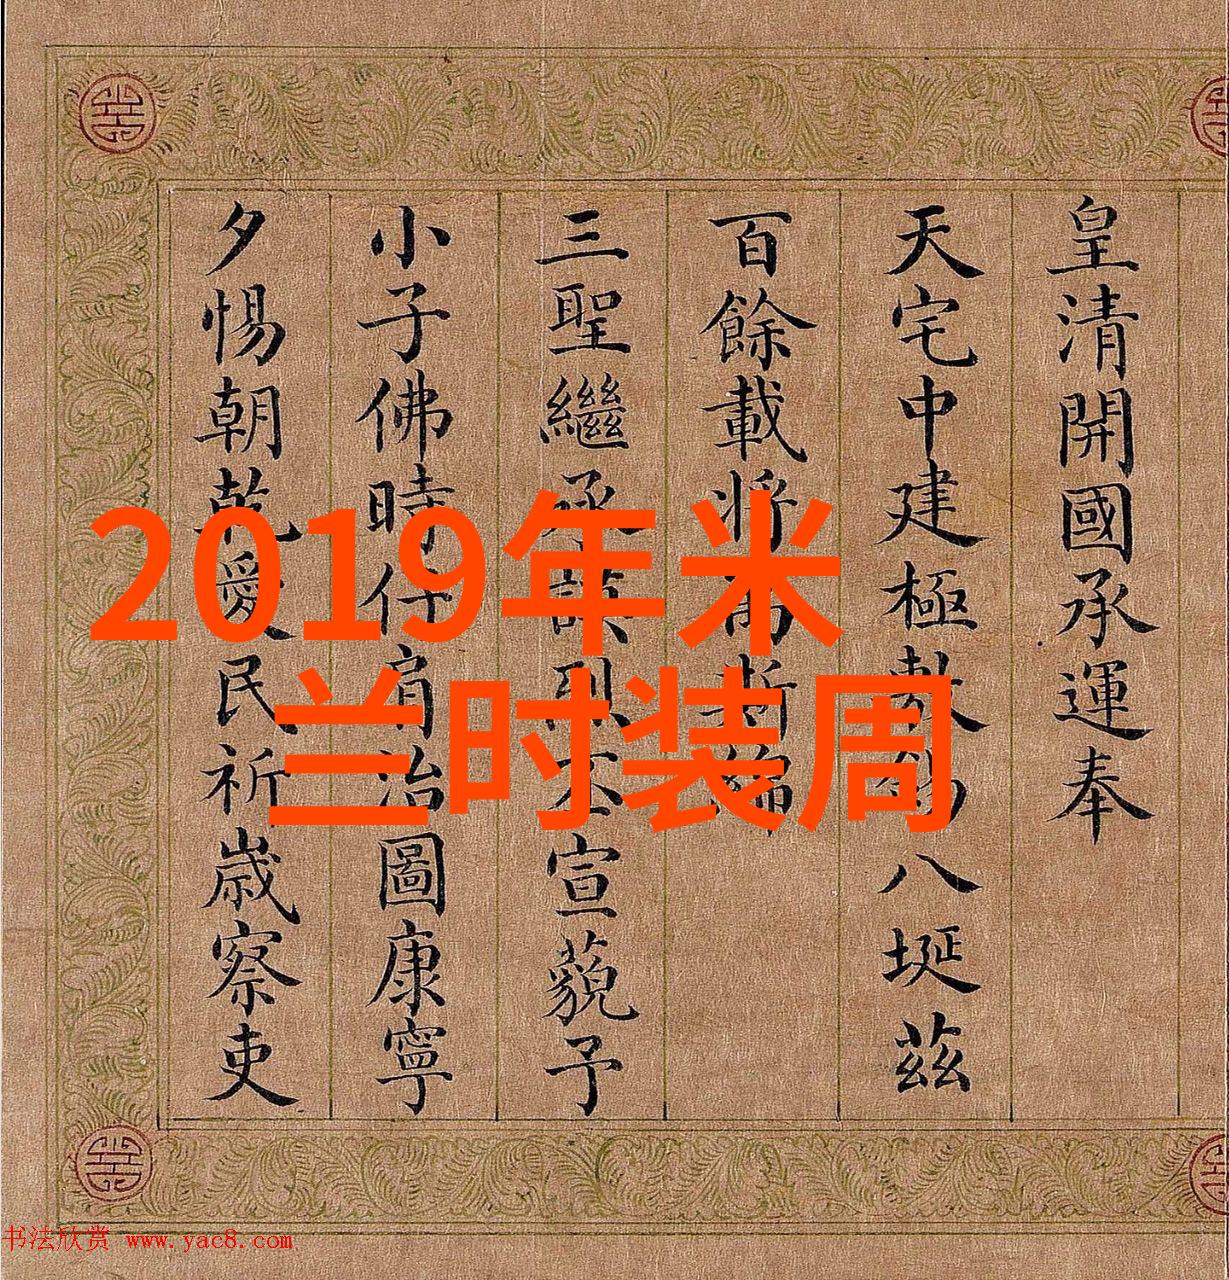 皇清開國承運奉
天宅中建極敷錫八埏茲
百餘載將斯綿
三聖繼承謨烈丕宣藐予
小子佛時仔肩治圖康寧
夕惕朝乾愛民祈歲察吏
2019年米
兰时装周
书法欣赏 www.yac8.com